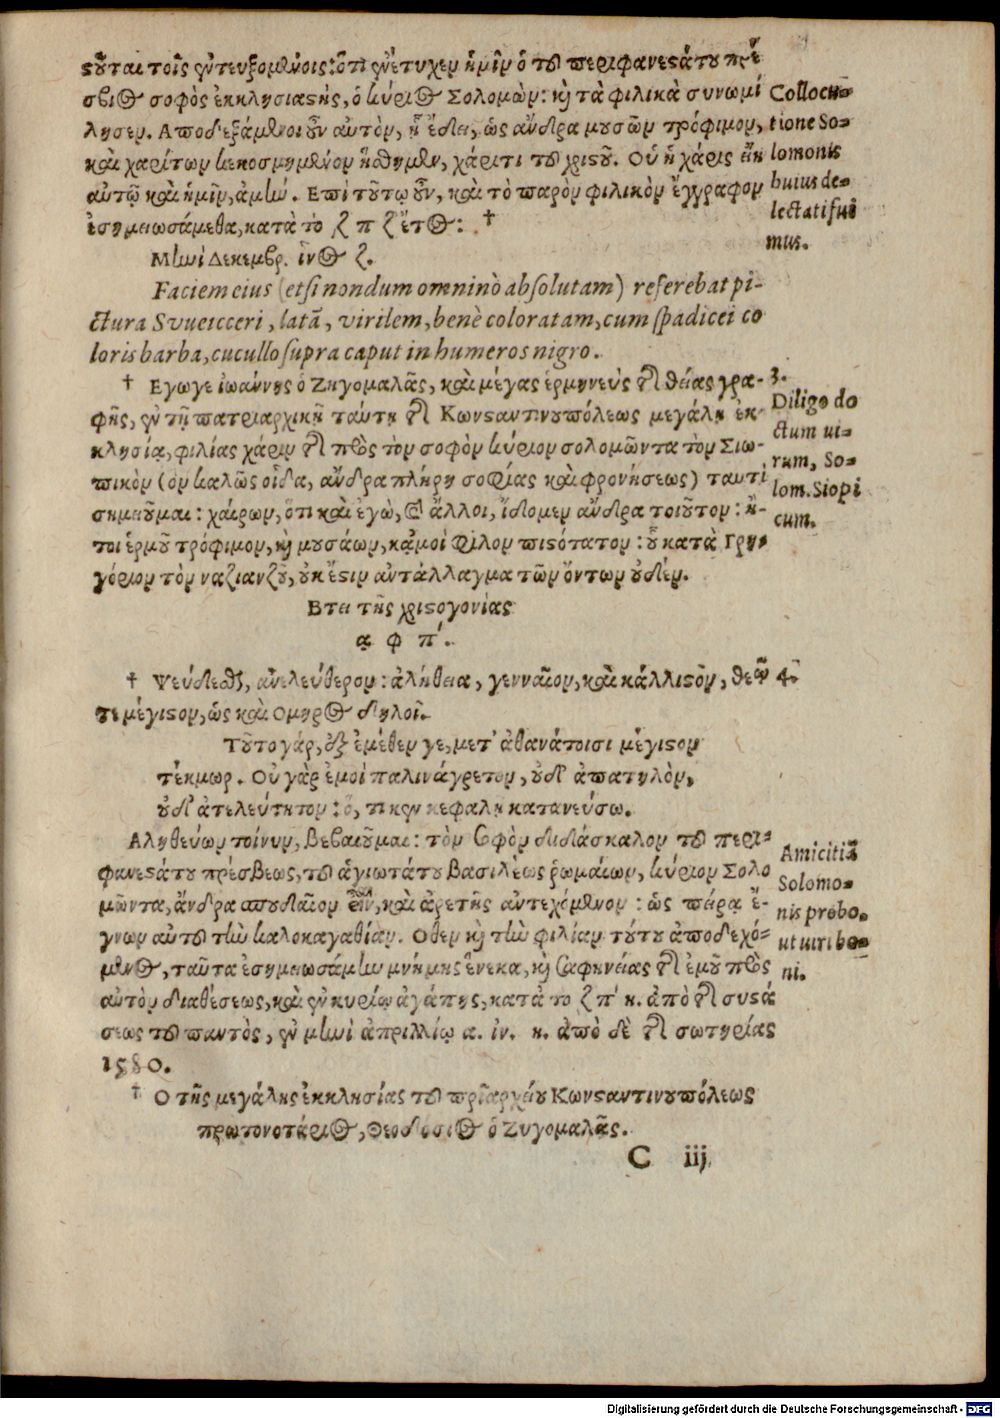 στοῦται τοῖς ἐντευξομένοις: ὅτι ἐνέτυχεν ἡμῖν ὁ τοῦ περιφανεστάτου πρέ
σβεος σοφὸς ἐκκλησιαστὴς, ὁ κύριος Σολομὼν: καὶ τὰ φιλικὰ συνωμί
λησεν. Αποδεξάμενοι οὖν αὐτὸν, ᾗ ἔδει, ὡς ἄνδρα μουσῶν τρόφιμον,
καὶ χαρίτων κεκοσμημένον ἥσθημεν, χάριτι τοῦ χριστοῦ. Οὗ ἡ χάρις εἴη
αὐτῷ καὶ ἡμῖν, ἀμήν. Επὶ τούτῳ οὖν, καὶ τὸ παρὸν φιλικὸν ἔγγραφον
ἐσημειωσάμεθα, κατὰ τὸ ζ π ζ ἔτος: †
Collocu=
tione So=
lomonis
huius de=
lectati sui
mus.
Μηνὶ Δεκεμβρ. ἰνδ ζ.
Faciem eius (etsi nondum omninò absolutam) referebat pi-
ctura Svueicceri, latã, virilem, benè coloratam, cum spadicei co
loris barba, cucullo supra caput in humeros nigro.
† Εγωγε ἰωάννης ὁ Ζηγομαλᾶς, καὶ μέγας ἑρμηνεὺς τῆς θείας γρα-
φῆς, ἐν τῇ πατριαρχικῇ ταύτῃ τῆς Κωνσταντινουπόλεως μεγάλῃ ἐκ-
κλησίᾳ, φιλίας χάριν τῆς πρὸς τὸν σοφὸν κύριον σολομῶντα τὸν Σιω-
πικὸν (ὃν καλῶς οἶδα, ἄνδρα πλήρη σοφίας καὶ φρονήσεως) ταυτὶ
σημειοῦμαι: χαίρων, ὅτι καὶ ἐγὼ, καὶ ἄλλοι, ἴδομεν ἄνδρα τοιοῦτον: ἤ-
τοι ἑρμοῦ τρόφιμον, καὶ μουσάων, κἀμοὶ φίλον πιστότατον: οὗ κατὰ Γρη-
γόριον τὸν ναζιανζοῦ, οὐκ ἔστιν ἀντάλλαγμα τῶν ὄντων οὐδέν.
3.
Diligo do
ctum ui=
rum, So=
lom. Siopi
cum.
Ετει τῆς χριστογονίας
α φ π΄.
† Ψεύδεσθαι, ἀνελεύθερον: ἀλήθεια, γενναῖον, καὶ κάλλιστον, θεῶν 4.
τι μέγιστον, ὡς καὶ Ομηρος δηλοῖ.
Τοῦτο γάρ, ἐξ ἐμέθεν γε, μετ' ἀθανάτοισι μέγιστον
τέκμωρ. Οὐ γὰρ ἐμοὶ παλινάγρετον, οὐδ' ἀπατηλὸν,
οὐδ' ἀτελεύτητον: ὅ, τι κεν κεφαλῇ κατανεύσω.
Αληθεύων τοίνυν, βεβαιοῦμαι: τὸν σοφὸν διδάσκαλον τοῦ περι=
φανεστάτου πρέσβεως, τοῦ ἁγιωτάτου βασιλέως ῥωμαίων, κύριον Σολο
μῶντα, ἄνδρα σπουδαῖον εἶναι, καὶ ἀρετῆς ἀντεχόμενον: ὡς πείρᾳ ἔ-
γνων αὐτοῦ τὴν καλοκαγαθίαν. Οθεν καὶ τὴν φιλίαν τούτου ἀποδεχό=
μενος, ταῦτα ἐσημειωσάμην μνήμης ἕνεκα, καὶ σαφηνείας τῆς ἐμοῦ πρὸς
αὐτὸν διαθέσεως, καὶ ἐν κυρίῳ ἀγάπης, κατὰ τὸ ζ π η. ἀπὸ τῆς συστά
σεως τοῦ παντὸς, ἐν μηνὶ ἀπριλλίῳ α. ἰν. η. ἀπὸ δὲ τῆς σωτηρίας
1580.
Amicitiã
Solomo=
nis probo,
ut uiri bo=
ni.
† Ο τῆς μεγάλης ἐκκλησίας τοῦ πριαρχείου Κωνσταντινουπόλεως
πρωτονοτάριος, Θεοδόσιος ὁ Ζυγομαλᾶς.
C iij
Digitalisierung gefördert durch die Deutsche Forschungsgemeinschaft - DFG